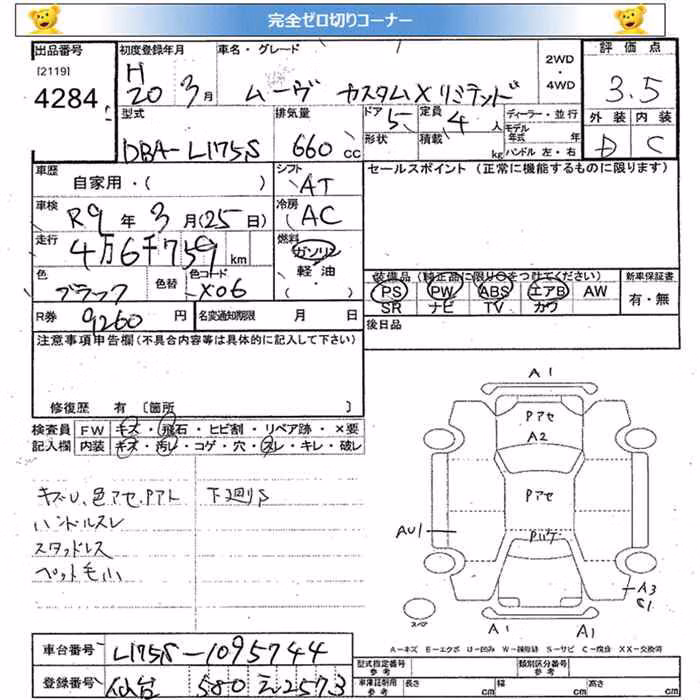 完全ゼロ切りコーナー
出品番号 初度登録年月 車名・グレード 2WD・4WD 評価点
[2119] 4284 H20 3月 ムーヴ カスタムXリミテッド 3.5
型式 排気量 ドア 5 定員 4人 ディーラー・並行 外装 内装
DBA-L175S 660cc 形状 積載 kg モデル年式 年 D C
ハンドル 左・右
車歴 自家用・( ) シフト AT セールスポイント (正常に機能するものに限ります)
車検 R9年3月(25日) 冷房 AC
走行 4万6千759km 燃料 ガソリン・軽油・( )
色 ブラック 色替 色コード X06 装備品 (純正品に限り○をつけてください) 新車保証書
PS PW ABS エアB AW 有・無
SR ナビ TV カワ
R券 9260円 名変通知期限 月 日 後日品
注意事項申告欄(不具合内容等は具体的に記入して下さい)
修復歴 有 〔箇所 〕
検査員 FW キズ・飛石・ヒビ割・リペア跡・×要
記入欄 内装 キズ・汚レ・コゲ・穴・スレ・キレ・破レ
キズU、色アセ、Pアト 下廻りS
ハンドルスレ
スタッドレス
ペット毛小
A1
Pアセ
A2
Pアセ
Pハゲ
AU1
A3
S1
スペア
A1 A1
A-キズ E-エクボ U-凹み W-補修跡 S-サビ C-腐食 XX-交換済
車台番号 L175S-1095744 型式指定番号 参考 類別区分番号 参考
登録番号 仙台 580 え 2573 車検証期用 参考 長さ cm 幅 cm 高さ cm